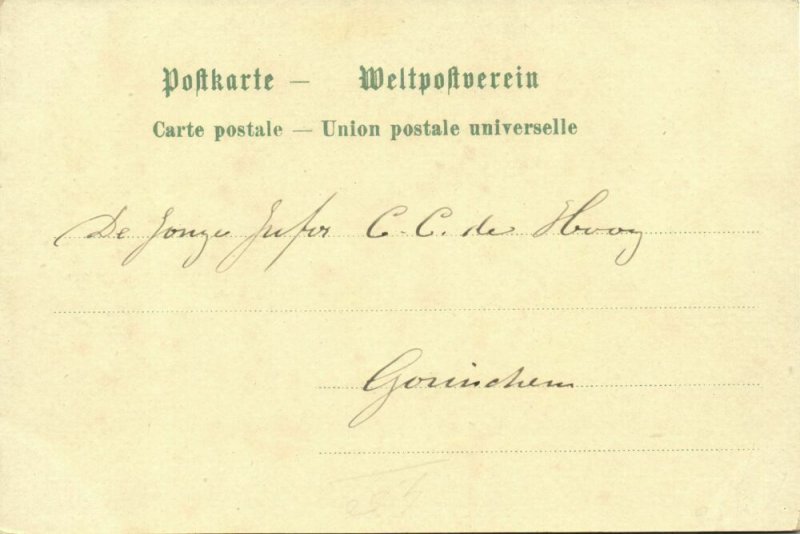 Postkarte — Weltpostverein
Carte postale — Union postale universelle
De Jonge Jufvr C. C. de Hoog
Gorinchem